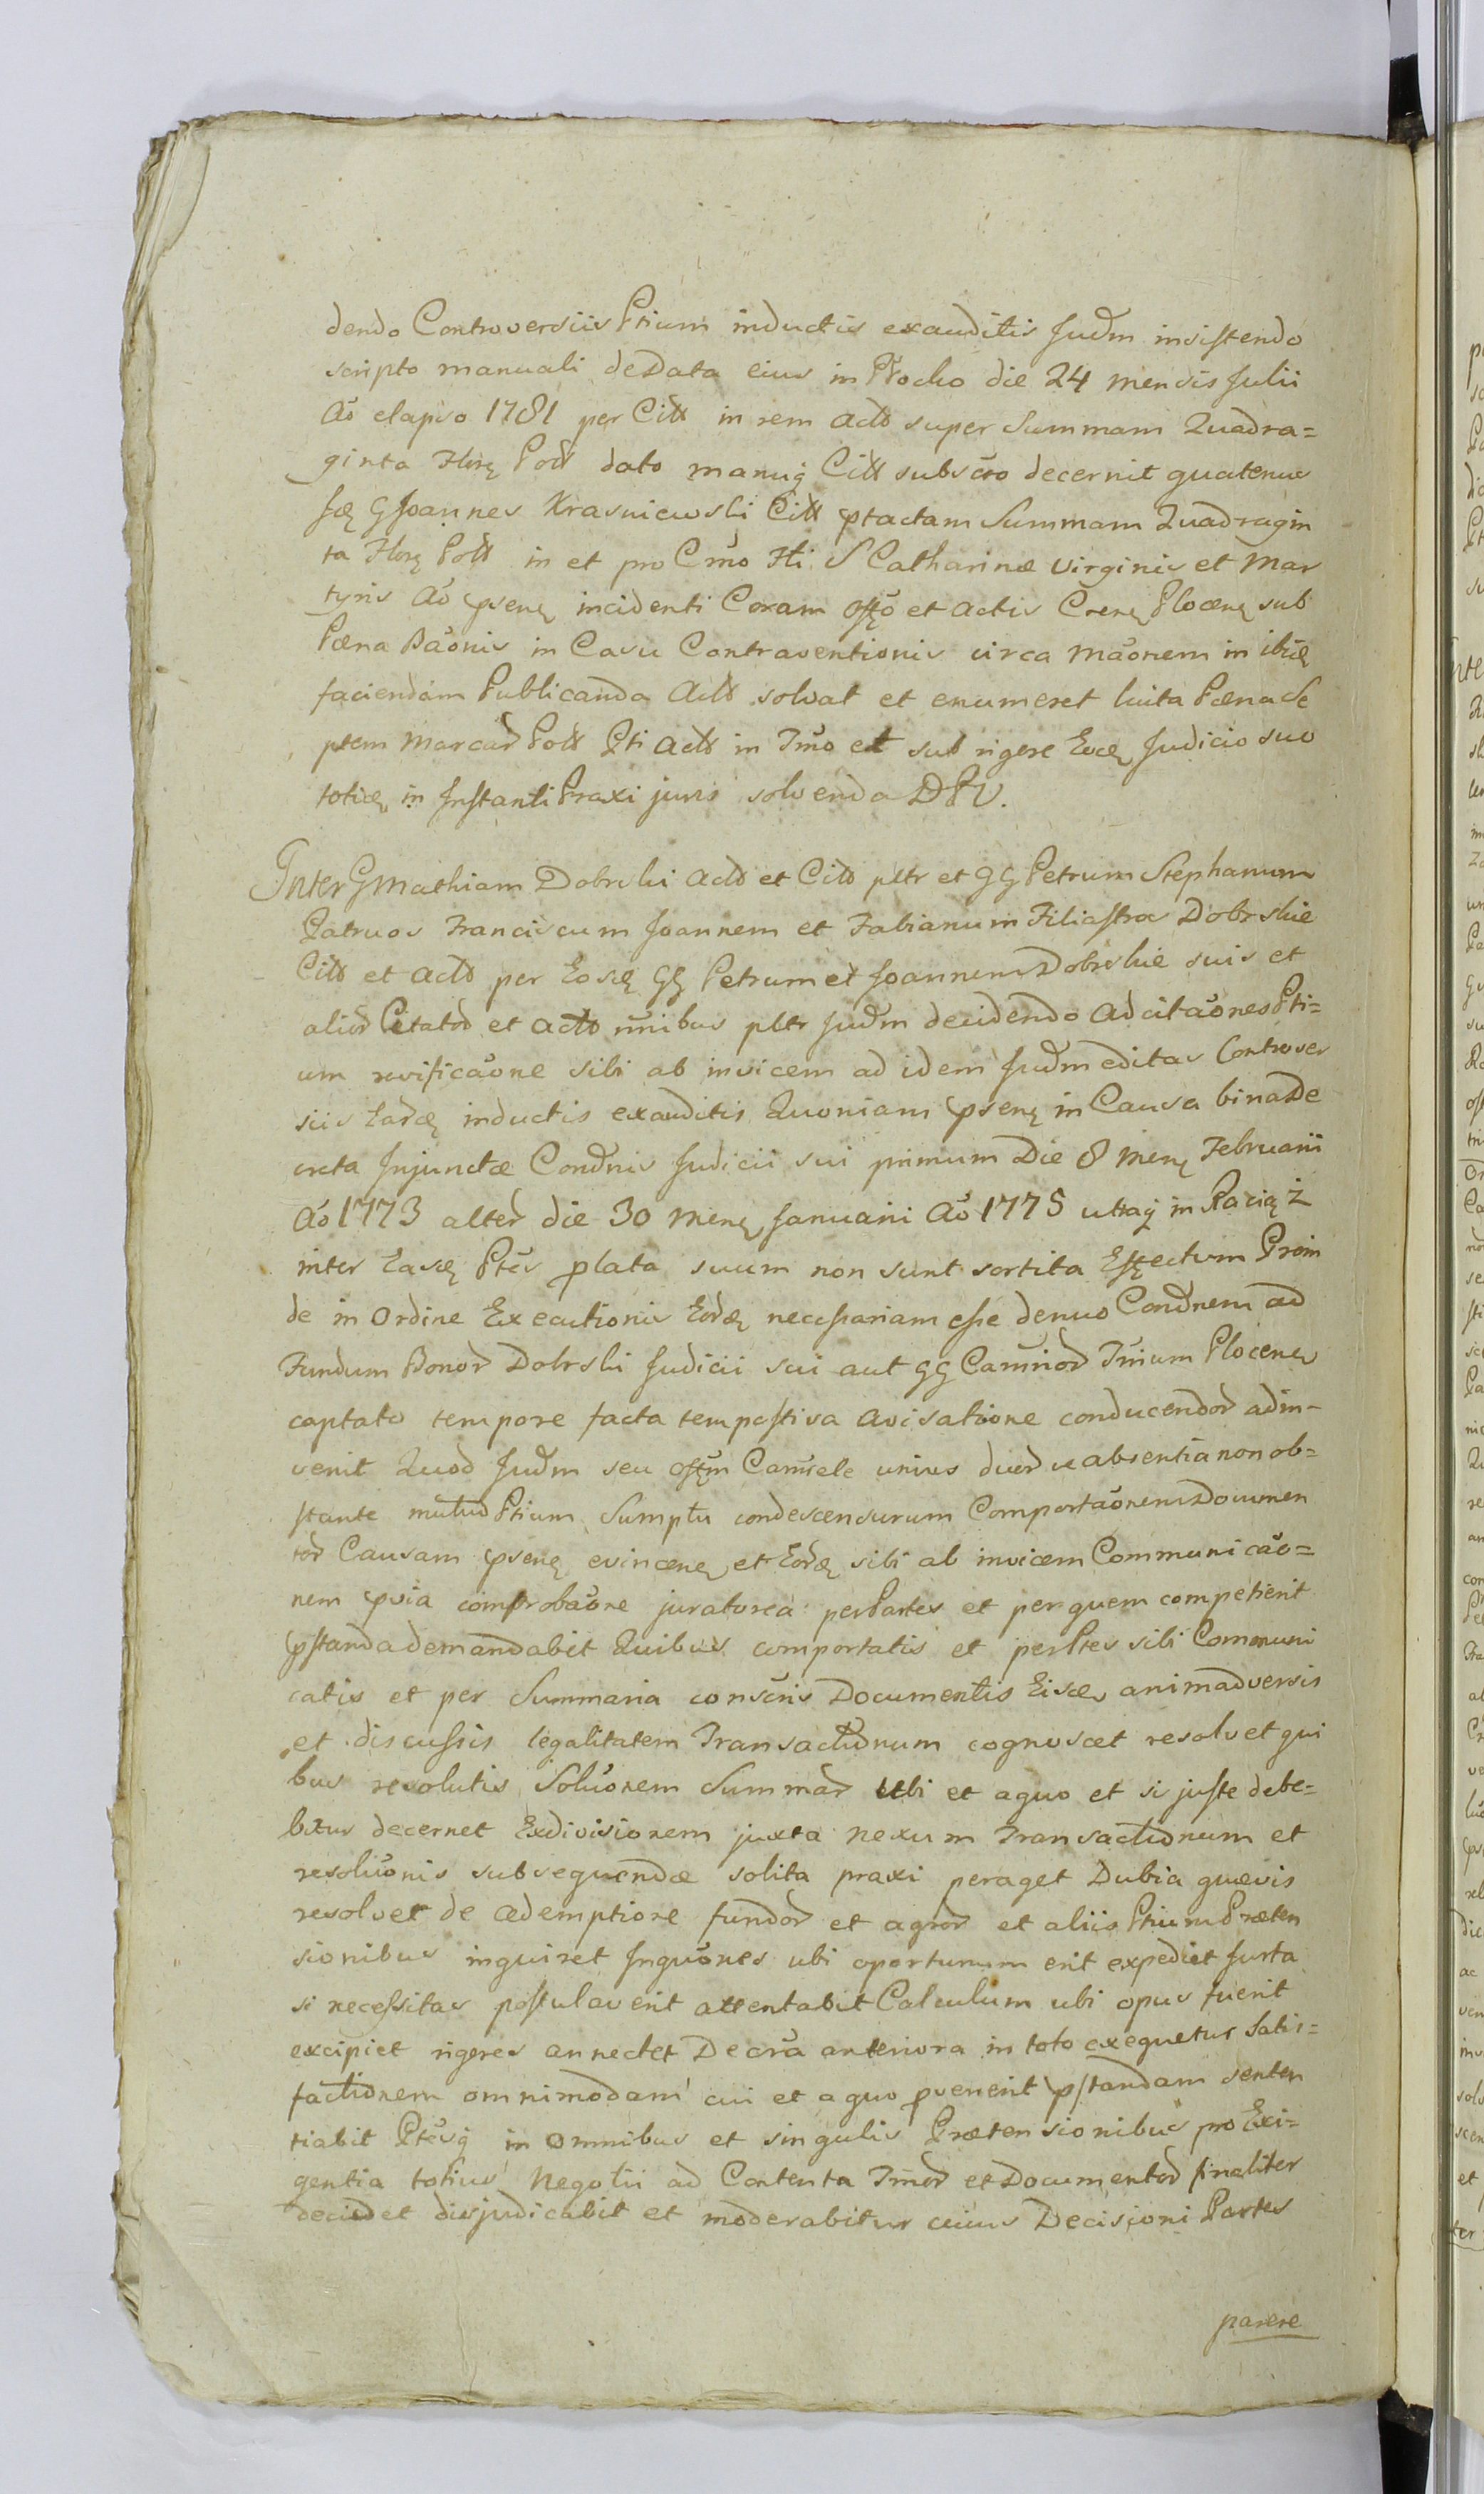 dendo Controversiis Ptium inductis exauditis Judm insistendo
scripto manuali de Data eius in Płocko die 24 mensis Julii
Aõ elapso 1781 per Citt in rem Actt super Summam Quadra=
ginta Flor Poll dato manuq Citt subscro decernit quatenus
G Joannes Krasniewski Citt ptactam Summam Quadragin
ta Flor Poll in et pro Cmõ Fti S Catharinæ Virginis et Mar
tyris Aõ psen incidenti Coram Offõ et Actis Cren Plocen sub
Pæna Bãonis in Casu Contraventionis circa mãonem in
faciendam Publicanda Actt solvat et enumeret luita Pæna Se
ptem Marcar Poll Pti Actt in Tmõ et sub rigere Judicio suo
toties in Instanti Praxi juris solvenda DPV.
Inter G Mathiam Dobrski Actt et Citt pltr et GG Petrum Stephanum
Patruos Franciscum Joannem et Fabianum Filiastros Dobrskie
Citt et Actt per Eosd GG Petrum et Joannem Dobrskie suis et
alior Citator et Actt nibus pltr Judm decidendo Ad citãones Pti=
um revificãone sibi ab invicem ad idem Judm editas Controver
siis Eard inductis exauditis Quoniam psen in Causa bina De
creta Injunctæ Condnis Judicii sui primum Die 8 Men Februarii
Aõ 1773 alter die 30 Men Januarii Aõ 1775 utraq in
inter Easd Ptes plata suum non sunt sortita Effectum Proin
de in Ordine Executionis Eord necessariam esse denuo Condnem ad
Fundum Bonor Dobrski Judicii sui aut GG Camrior Tmium Plocen
captato tempore facta tempestiva avisatione conducendor adin-
venit Quod Judm seu Offm Camrele unius duor ve absentia non ob=
stante mutuo Ptium Sumptu condescensurum Comportãonem Documen
tor Causam psen evincen et Eord sibi ab invicem Communicão=
nem pvia comprobãone juratorea per Partes et per quem competierit
pstanda demandabit Quibus comportatis et per Ptes sibi Communi
catis et per Summaria conscris Documentis Eisd animadversis
et discussis legalitatem Transactionum cognoscet resolvet qui
bus resolutis Soluõnem Summar ubi et a quo et si juste debe=
bitur decernet Exdivisionem juxta nexum Transactionum et
resoluõnis subsequendæ solita praxi peraget Dubia quævis
resolvet de ademptione fundor et agror et aliis Ptium Præten
sionibus inquiret Inquõnes ubi oportunum erit expediet Jurta
si necessitas postulaverit attentabit Calculum ubi opus fuerit
excipiet rigeres annectet Decra anteriora in toto exequetur Satis=
factionem omnimodam cui et a quo pvenerit pstandam senten
tiabit Ptesq in omnibus et singulis Prætensionibus pro Exi=
gentia totius Negotii ad Contenta Tmor et Documentor finaliter
decidet disjudicabit et moderabitur cuius Decisioni Partes
parere